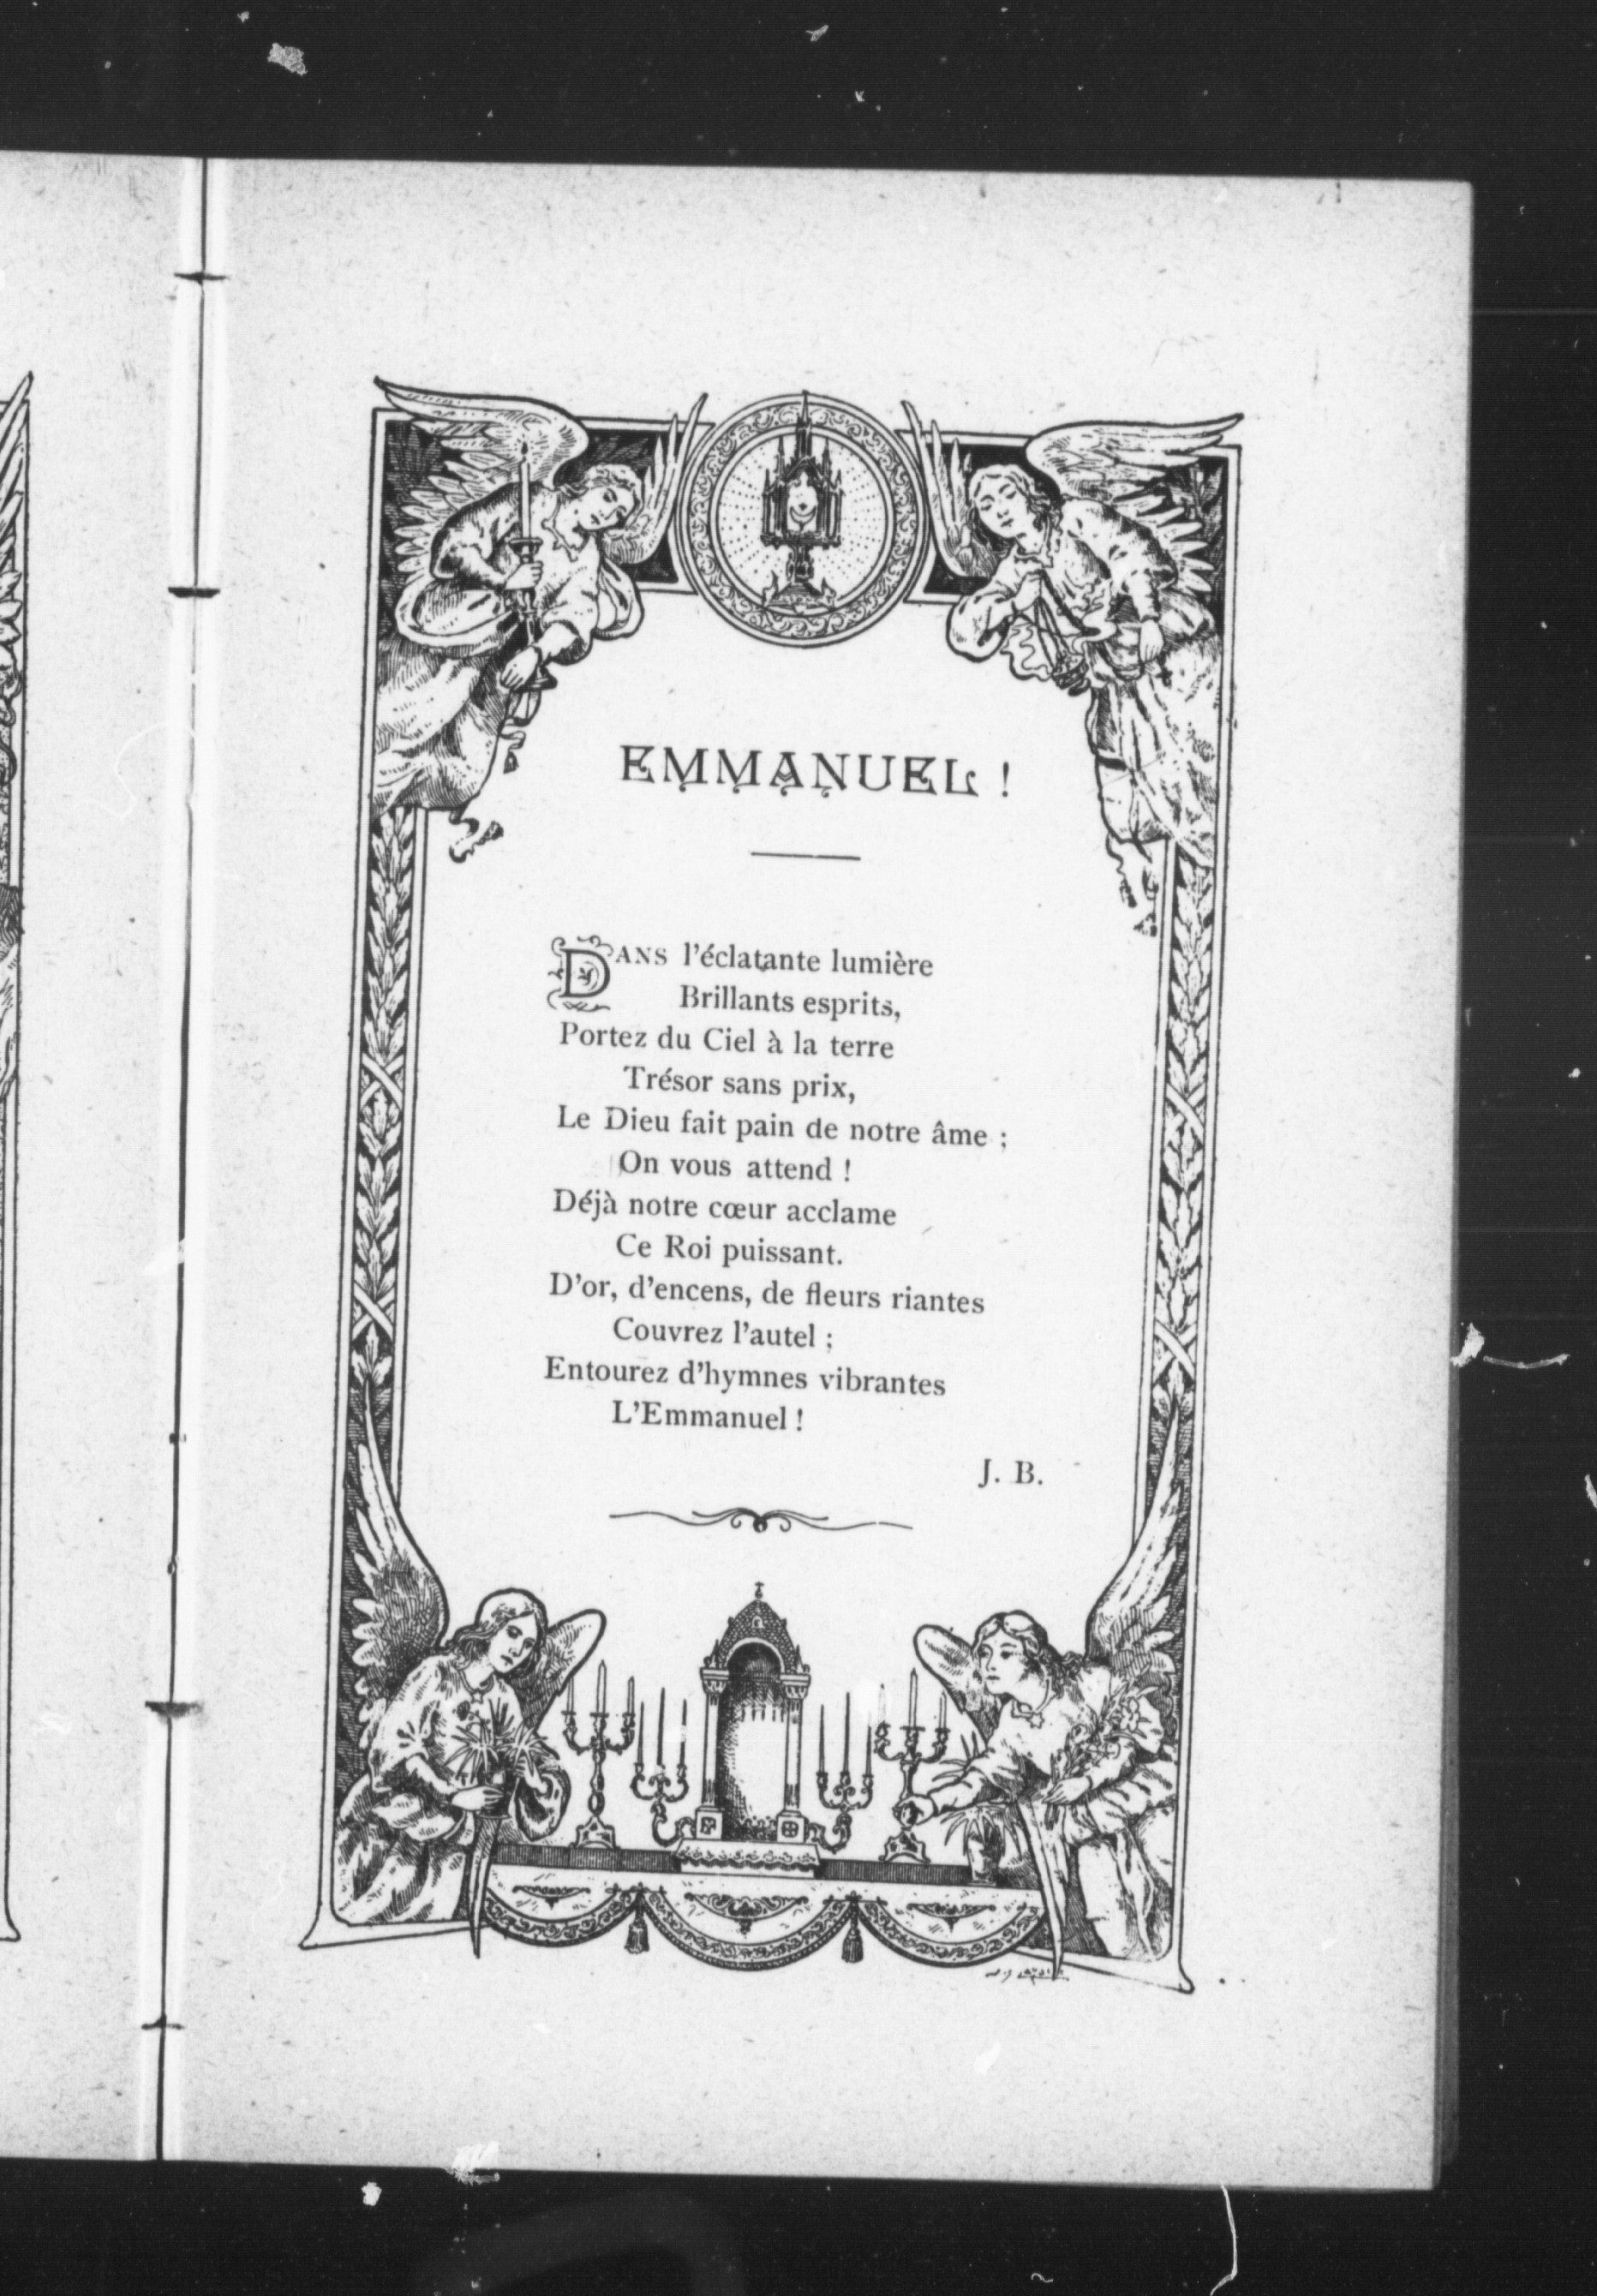 EMMANUEL !
DANS l'éclatante lumière
Brillants esprits,
Portez du Ciel à la terre
Trésor sans prix,
Le Dieu fait pain de notre âme ;
On vous attend !
Déjà notre cœur acclame
Ce Roi puissant.
D'or, d'encens, de fleurs riantes
Couvrez l'autel ;
Entourez d'hymnes vibrantes
L'Emmanuel !
J. B.